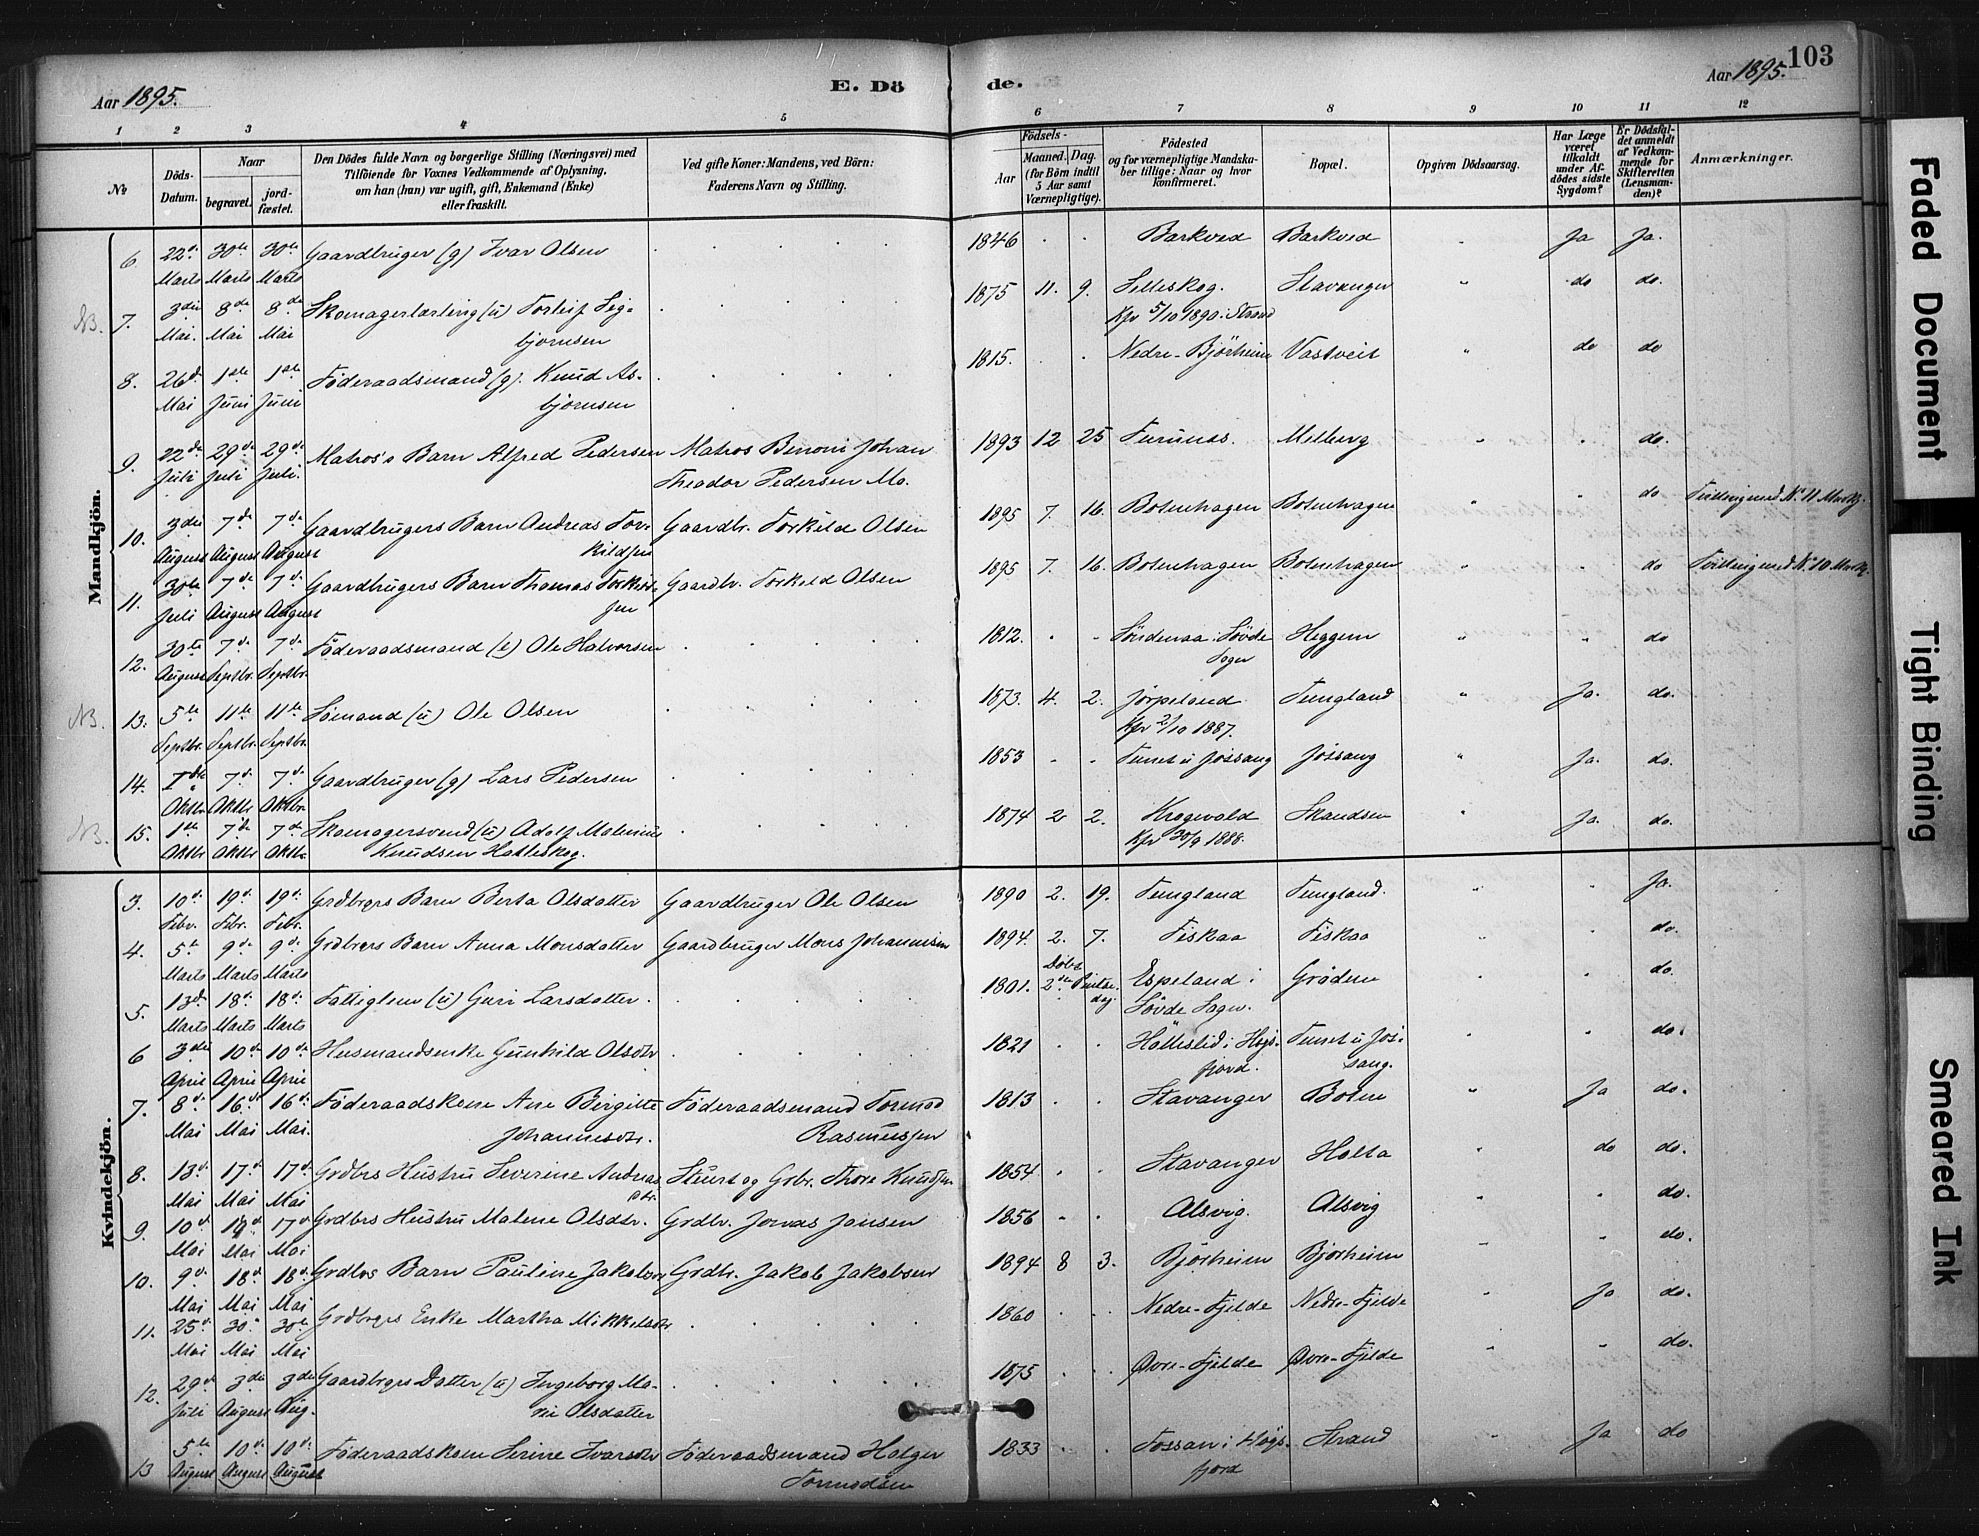 Aar 1895.
E. Dö
de.
Aar 1895.
103
1 2 3 4 5 6 7 8 9 10 11 12
№
Döds-
Datum.
Naar
begravet.
jord-
fæstet.
Den Dödes fulde Navn og borgerlige Stilling (Næringsvei) med
Tilföiende for Voxnes Vedkommende af Oplysning,
om han (hun) var ugift, gift, Enkemand (Enke)
eller fraskilt.
Ved gifte Koner: Mandens, ved Börn:
Faderens Navn og Stilling.
Födsels-
Aar
Maaned. Dag.
(for Börn indtil
5 Aar samt
Værnepligtige).
Födested
og for værnepligtige Mandska-
ber tillige: Naar og hvor
konfirmeret.
Bopæl.
Opgiven Dödsaarsag.
Har Læge
været
tilkaldt
under Af-
dödes sidste
Sygdom?
Er Dödsfal-
det anmeldt
af Vedkom-
mende for
Skifteretten
(Lensman-
den)?
Anmærkninger.
Mandkjön.
6. 22d. 30te 30te Gaardbruger (g) Ivar Olsen 1846 Barkved Barkved Ja Ja.
Marts Marts Marts
NB. 7. 3die 8de 8de Skomagerlærling (u) Torleif Sig- 1875 11. 9. Selleskog. Stavanger do do.
Mai. Mai Mai bjørnsen Kfr 5/10 1890 i Strand
8. 26d. 1ste 1ste Føderaadsmand (g). Knud As- 1815. Nedre-Bjørheim Vastveit do do
Mai Juni Juni bjørnsen
9. 22de 29d. 29de Matros's Barn Alfred Pedersen Matros Benoni Johan 1893 12 25 Furunæs. Melberg do.
Juli Juli Juli. Theodor Pedersen Mo.
10. 3die 7de 7de Gaardbrugers Barn Andreas Tor- Gaardbr. Torkild Olsen 1895 7. 16. Botnehagen Botnehagen do Tvilling med No 11 Mandkj.
August August August kildsen
11. 30te 7de 7de Gaardbrugers Barn Thomas Torkild- Gaardbr. Torkild Olsen 1895 7. 16. Botnehagen Botnehagen do Tvilling med No 10 Mandkj.
Juli August August sen
12. 30te 7de 7de Føderaadsmand (e) Ole Halvorsen 1812. Søndenaa i Søvde Heggem do
August Septbr. Septbr. Sogn
NB. 13. 5te 11te 11te Sømand (u) Ole Olsen 1873. 4. 2. Jørpeland Tungland Ja. do.
Septbr. Septbr. Septbr. Kfr 2/10 1887.
14. 1ste 7d. 7de Gaardbruger (g) Lars Pedersen 1853 Tunet u Jøssang Jøssang Ja. do.
Oktbr Oktbr Oktbr.
NB. 15. 1ste 7de 7de Skomagersvend (u) Adolf Malenius 1874 2 2. Krogevold Skandsen Ja. do.
Oktbr Oktbr Oktbr. Knudsen Hatleskog. Kfr 30/9 1888.
Kvindekjön.
3. 10d. 19d. 19d. Grdbrgrs Barn Berta Olsdatter Gaardbruger Ole Olsen 1890 2. 19. Tungland Tungland. Ja.
Febr. Febr. Febr.
4. 5te 9de 9de Grdbrgrs Barn Anna Monsdatter Gaardbruger Mons Johannesen 1894. 2. 7. Fiskaa Fiskaa do.
Marts Marts Marts
5. 13de 18d. 18d. Fattiglem (u) Guri Larsdatter 1801. Døbt 2den Pintse- dag. Espeland i Grødem do.
Marts Marts Marts Søvde Sogn.
6 3die 10de 10de Husmandsenke Gunhild Olsdtr 1821 Hølleslid i Høgs- Tunet u Jøs- do.
April April April fjord. sang.
7. 8de 16d. 16d. Føderaadskone Ane Birgitte Føderaadsmand Tormod 1813 Stavanger Botne Ja do.
Mai Mai Mai. Johannesdtr. Rasmussen
8. 13d. 17d. 17d. Grdbrs Hustru Severine Andreas- Stuert og Grbr. Thore Knudsen 1854 Stavanger Holta do do.
Mai Mai Mai dtr.
9. 10d. 17d. 17d. Grdbrs Hustru Malene Olsdtr. Grdbr. Jonas Jansen 1856 Alsvig. Alsvig do.
Mai Mai Mai
10. 9d. 18d. 18d. Grdbrs Barn Pauline Jakobsdtr Grdbr. Jakob Jakobsen 1894 8 3. Bjørheim Bjørheim do.
Mai Mai Mai
11. 25d. 30te 30te Grdbrgrs Enke Martha Mikkelsdtr 1860 Nedre-Fjelde Nedre-Fjelde Ja do.
Mai Mai Mai
12. 29d. 3die 3die Gaardbrgrs Datter (u) Ingeborg Ma- 1875 Øvre-Fjelde Øvre-Fjelde do.
Juli August Aug. rie Olsdatter
13 5te 10de 10de Føderaadskone Serine Ivarsdtr Føderaadsmand Holger 1833 Fossan i Høgs- Strand Ja do
August August August Tormodsen fjord
Faded Document
Tight Binding
Smeared Ink